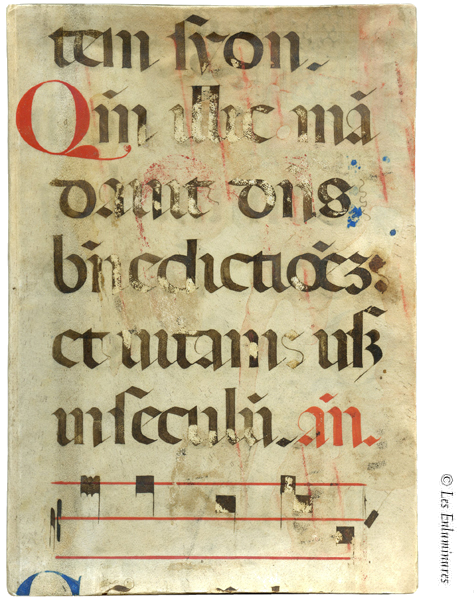 tem syon.
Qm̄ illic mā
davit dn̄s
bn̄edictiōez:
et vitam us&
in seculū. an̄.
© Les Enluminures